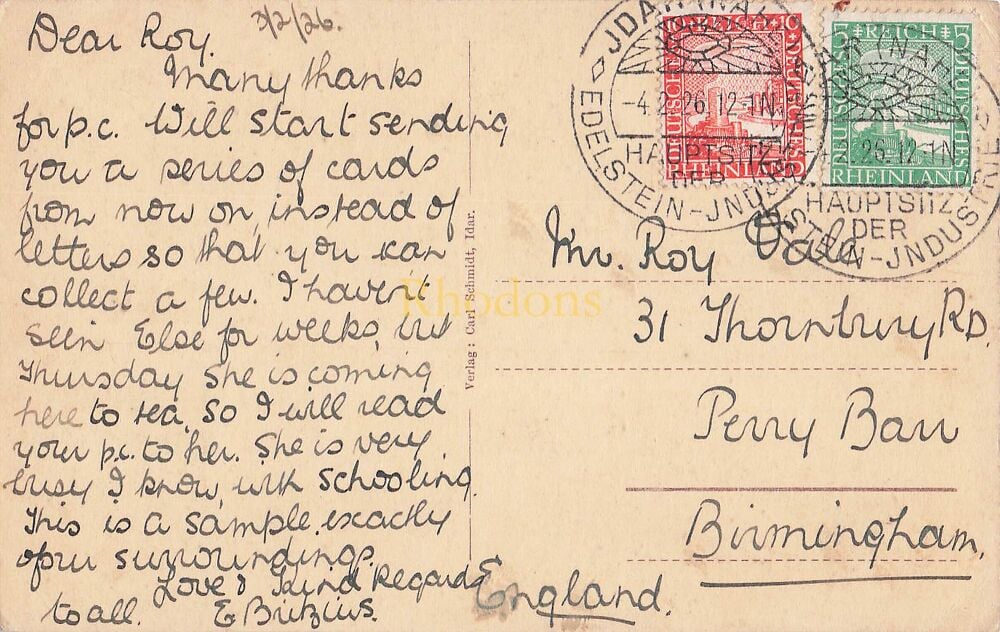 3/2/26.
Dear Roy.
Many thanks
for p.c. Will start sending
you a series of cards
from now on, instead of
letters so that you can
collect a few. I havent
seen Else for weeks, but
Thursday she is coming
here to tea, so I will read
your p.c. to her. She is very
busy I know, with schooling.
This is a sample, exactly
of our surroundings.
Love & Kind Regards
to all. E Britzius.
Verlag: Carl Schmidt, Idar.
Rhodons
10 REICH 10
DEUTSCHES
RHEINLAND
5 REICH 5
DEUTSCHES
RHEINLAND
JDAR (NAHE)
-4.2.26.12-1N.
HAUPTSITZ
DER
EDELSTEIN-JNDUSTRIE
NAHE
26.12-1N
HAUPTSITZ
DER
STEIN-JNDUSTRIE
Mr. Roy
31 Thornbury RD.
Perry Barr
Birmingham.
England.